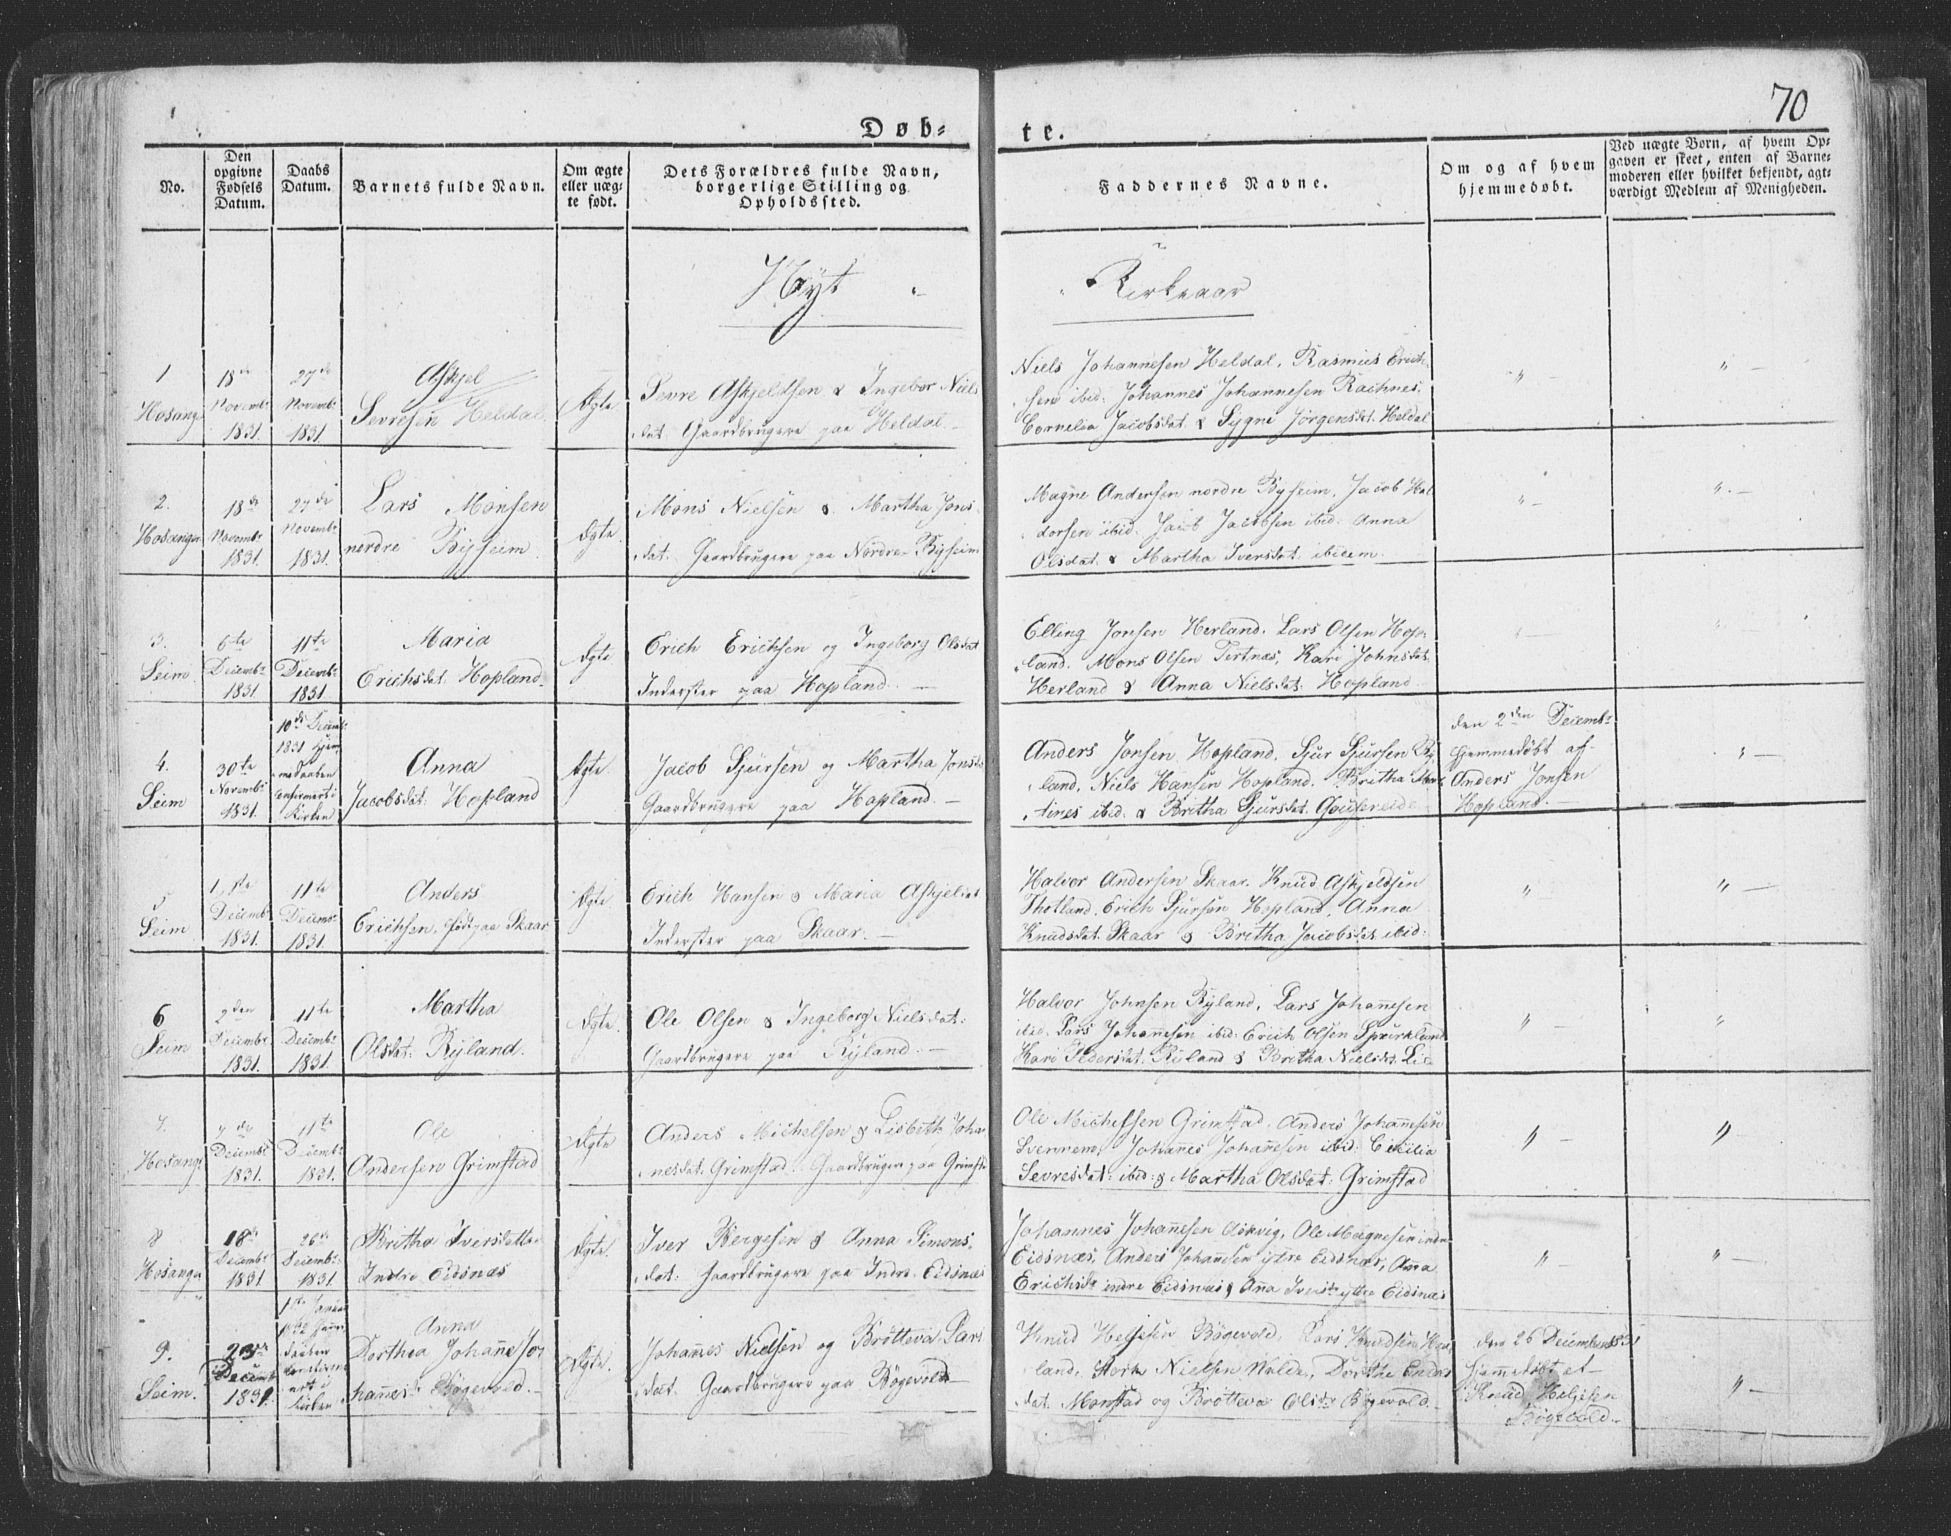 70
Døb-
te.
No.
Den
opgivne
Fødsels
Datum.
Daabs
Datum.
Barnets fulde Navn.
Om ægte
eller uæg-
te født.
Dets Forældres fulde Navn,
borgerlige Stilling og
Opholdssted.
Faddernes Navne.
Om og af hvem
hjemmedøbt.
Ved uægte Børn, af hvem Op-
gaven er skeet, enten af Barne-
moderen eller hvilket bekjendt, agt-
værdigt Medlem af Menigheden.
Nyt
Kirkeaar
1
Hosang
18de
Novembr
1831
27de
Novembr
1831.
Askjel
Sevresen Heldal
Ægte
Sevre Askjeldsen & Ingebor Niels
dat. Gaardbrugere paa Heldal
Niels Johannesen Heldal, Rasmus Erich-
sen ibid: Johannes Johannesen Raknes.
Cornelia Jacobsdat. & Sygni Jørgensdat. Heldal
2.
Hosanger
18de
Novembr
1831.
27de
Novembr
1831.
Lars Monsen
nordre Byseim
Ægte
Mons Nielsen & Martha Jons
dat. Gaardbrugere paa Nordre Byseim
Magne Andersen nordre Byseim, Jacob Hal
dorsen ibid. Jacob Jacobsen ibid. Anna
Olsdat. & Martha Iversdat. ibidem.
3.
Seim
6te
Decembr
1831.
11te
Decembr
1831.
Maria
Erichsdat. Hopland
Ægte
Erich Erichsen og Ingeborg Olsdat
Inderster paa Hopland.
Elling Jonsen Herland. Lars Olsen Hop-
land. Mons Olsen Tertnæs, Kari Johnsdat.
Herland & Anna Nielsdat. Hopland
4.
Seim
30te
Novembr
1831.
10de Decembr
1831 hjem
medaaben
confirmert i
Kirken
Anna
Jacobsdat. Hopland
Ægte
Jacob Sjursen og Martha Jonsd
Gaardbrugere paa Hopland.
Anders Jonsen Hopland, Sjur Sjursen Ry
land, Niels Hansen Hopland. Britha Mar
tines ibid: & Britha Sjursdat.
den 2den Decembr
hjemmedøbt af
Anders Jonsen
Hopland.
5
Seim
1ste
Decembr
1831.
11te
Decembr
1831.
Anders
Erichsen, født paa Skaar
Ægte
Erich Hansen & Maria Askjelsdat
Inderster paa Skaar.
Halvor Andersen Skaar. Knud Askjeldsen
Thotland, Erich Sjursen Hopland, Anna
Knudsdat. Skaar & Britha Jacobsdat ibid:
6
Seim
2den
Decembr
1831.
11te
Decembr
1831.
Martha
Olsdat: Ryland.
Ægte
Ole Olsen & Ingeborg Nielsdat:
Gaardbrugere paa Ryland.
Halvor Johnsen Ryland, Lars Johannesen
ibid. Lars Johannesen ibid: Erich Olsen Spurkland
Kari Pedersdat. Ryland & Britha Nielsdat. Lie
7.
Hosang
Decembr
1831.
11te
Decembr
1831.
Ole
Andersen Grimstad
Ægte
Anders Michelsen & Lisbeth Joha
nesdat. Grimstad. Gaardbruger paa Grimst
Ole Michelsen Grimstad, Anders Johannesen
Johannes Johannesen ibid: Cicilia
Sevresdat: ibid: & Martha Olsdat: Grimstad
8
Hosanger
18de
Decembr
1831
26de
Decembr
1831.
Britha Iversdatter
Indre Eidsnæs
Ægte
Iver Børgesen & Anna Simons.
dat: Gaardbrugere paa Indre Eidsnæs
Johannes Johannesen Askvig, Ole Magnesen indre
Eidsnæs, Anders Johannesen ytre Eidsnæs, Anna
Erichsdr indre Eidsnæs & Anna Iversdr ytre Eidsnæs
9.
Seim.
23de
Decembr
1831.
1ste Januar
1832 hjem
daaben
i
Kirken
Anna
Dorthea Johanne Jo
hannesd. Bøgevold.
Ægte.
Johannes Nielsen og Brotteva Lars
dat. Gaardbrugere paa Bøgevold
Knud Helgesen Bøgevold, Lars Knudsen
land, Nielsen Dorthe Enders
dat. Monstad og Brotteva Olsdr Bøgevold.
den 26 December 1831
hjemmedøbt af
Knud Helgesen
Bøgevold.